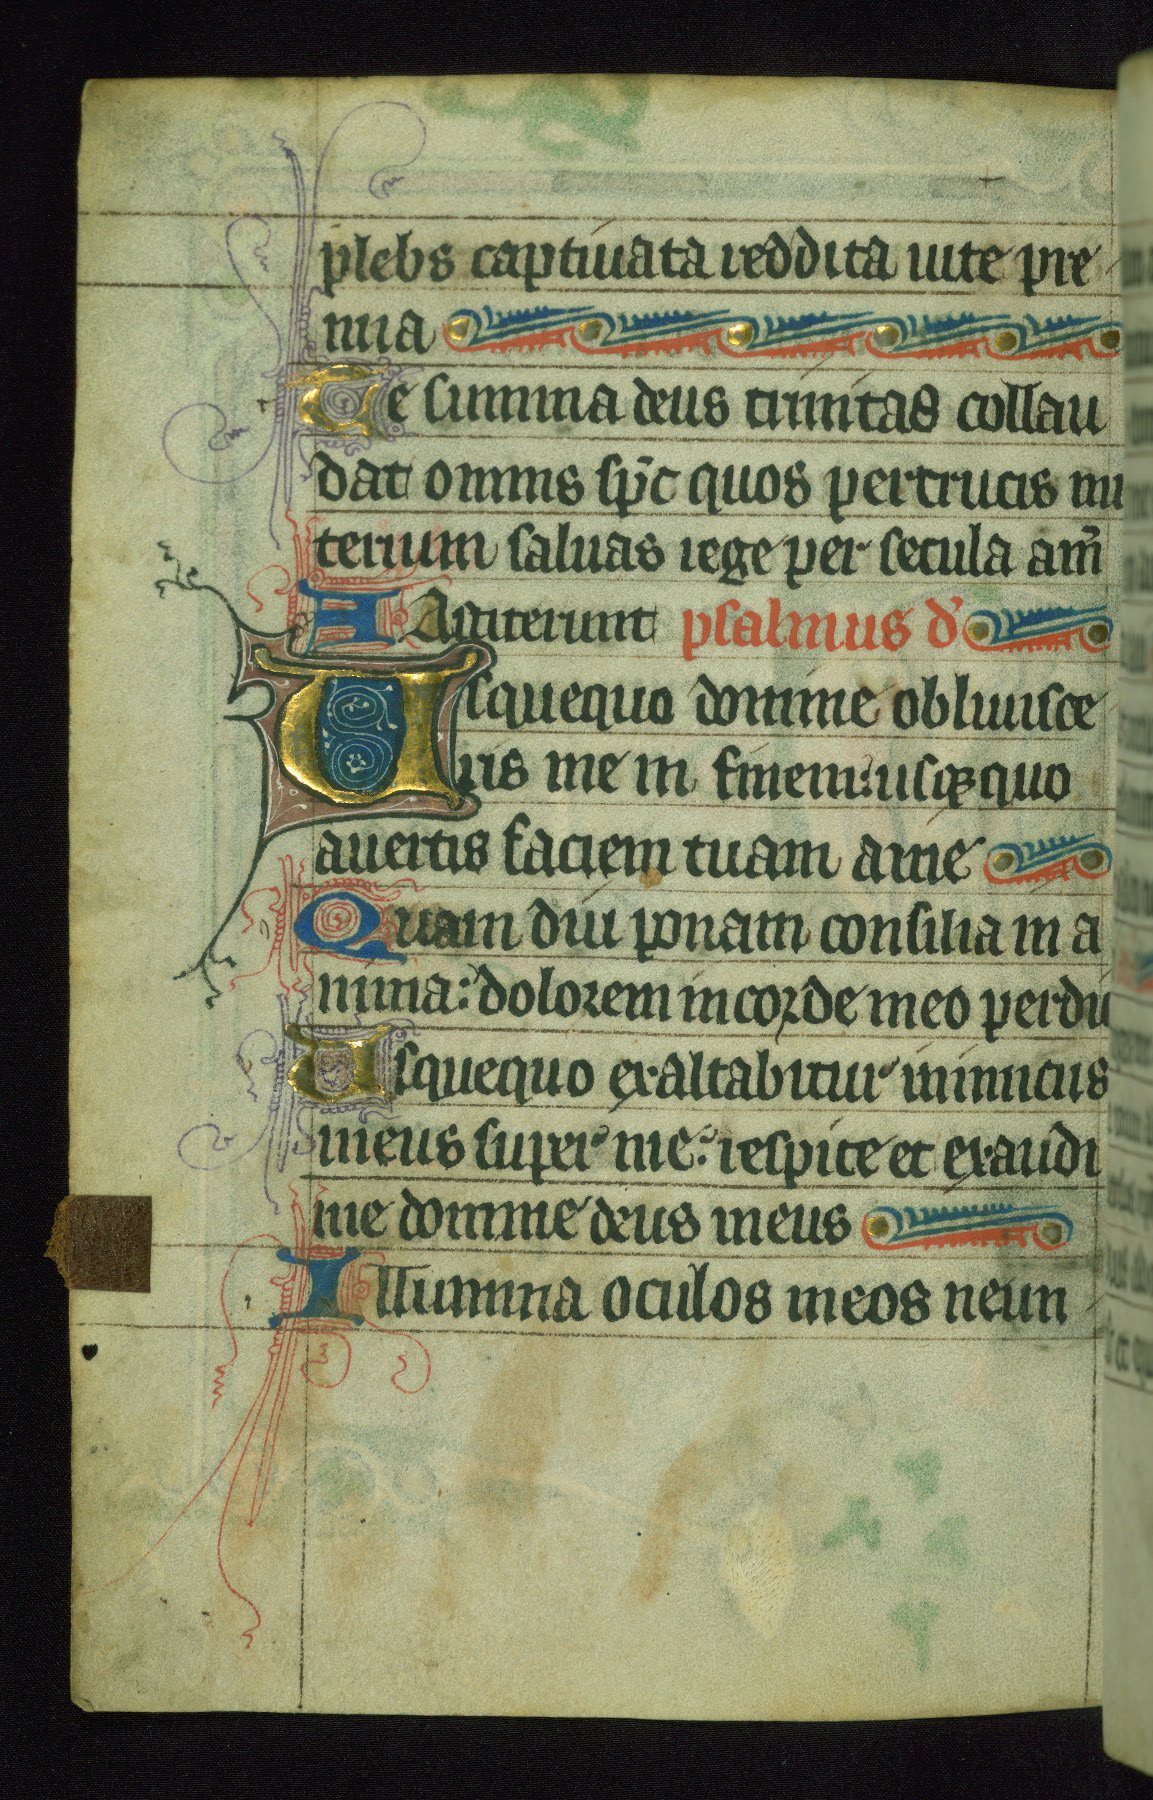 plebs captiuata reddita uite pre
mia
Te summa deus trinitas collau
dat omnis sp̄c quos per crucis mi
terium saluas rege per secula am̄
A Astiterunt psalmus d'
Usquequo domine obliuisce
ris me in finem: usq̨ quo
auertis faciem tuam a me
Quam diu ponam consilia in a
nima: dolorem in corde meo per diē
Usquequo exaltabitur inimicus
meus super me: respice et exaudi
me domine deus meus
Illumina oculos meos ne un